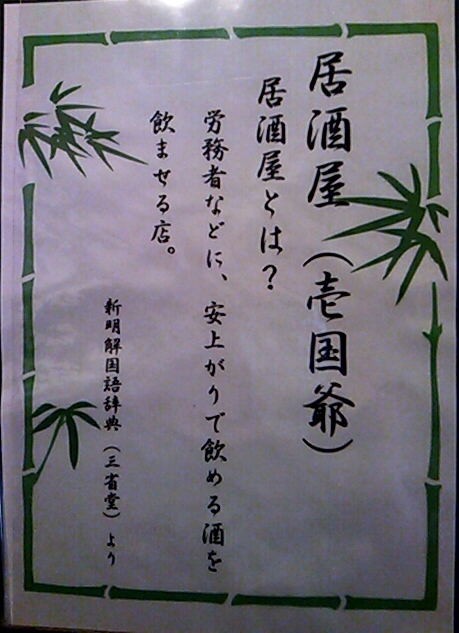 居酒屋(壱国爺)
居酒屋とは?
労務者などに、安上がりで飲める酒を
飲ませる店。
新明解国語辞典(三省堂)より